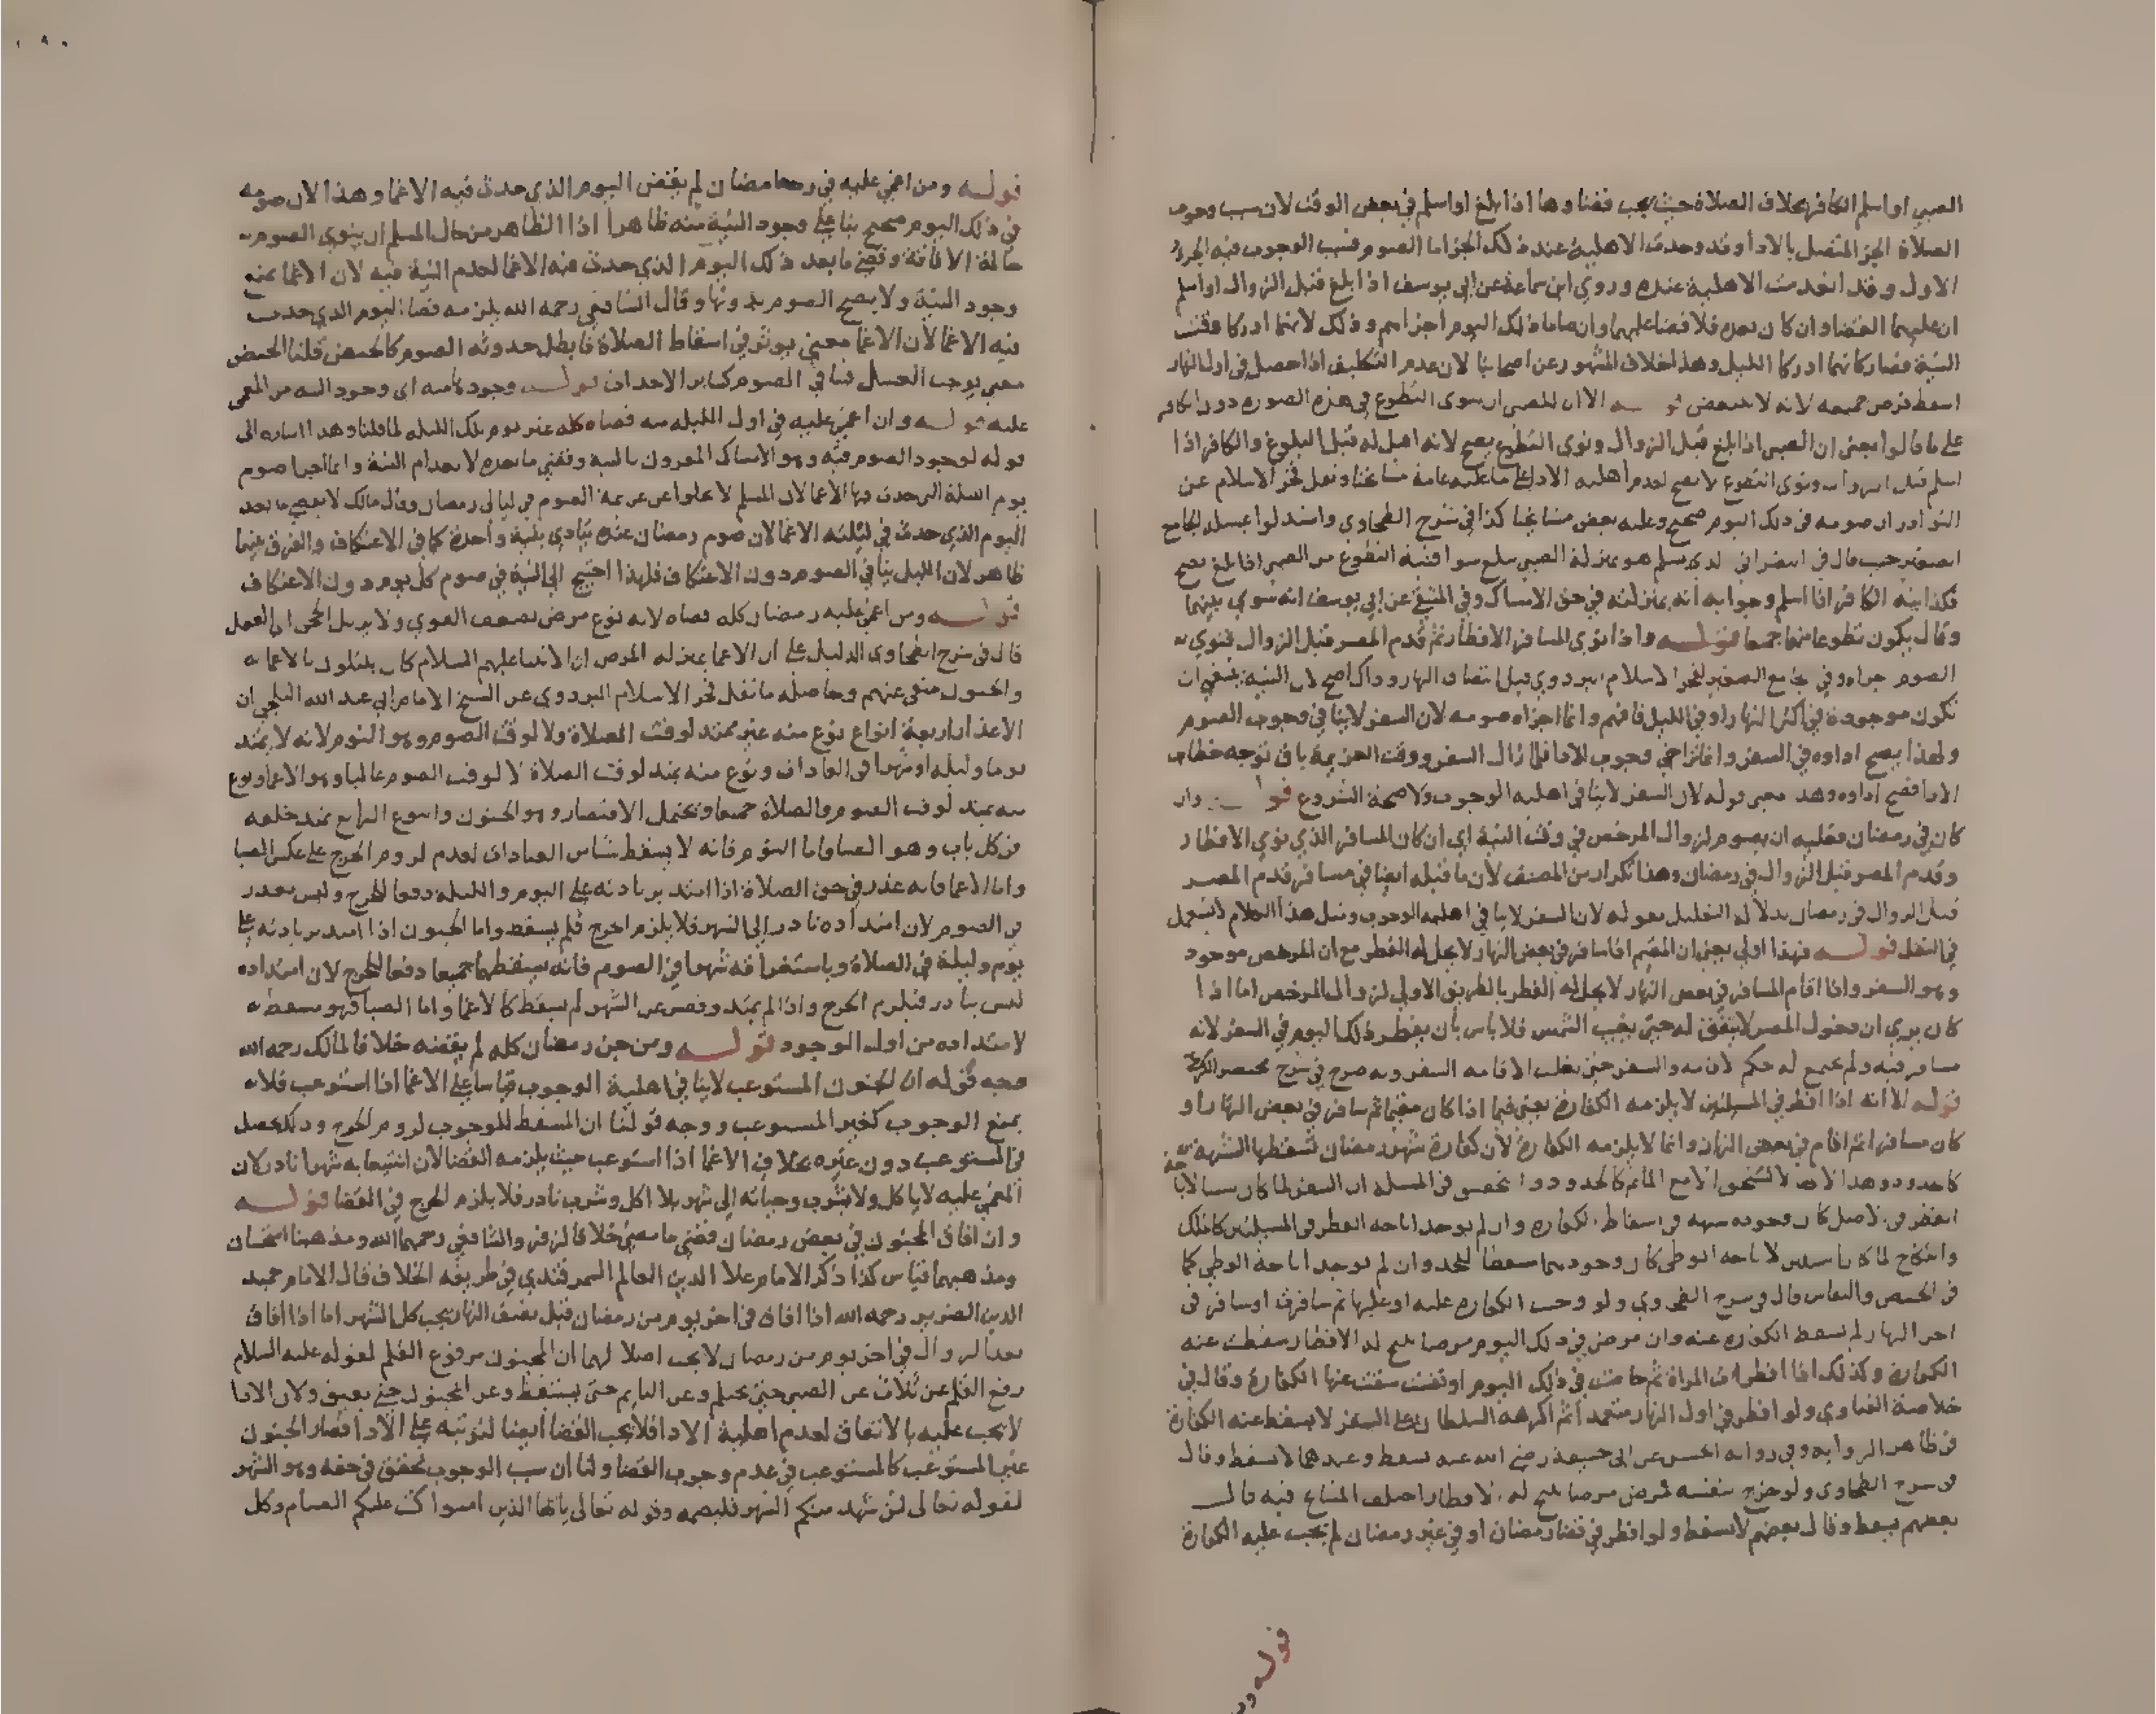 الصبي او اسلم الكافر بخلاف الصلاة حيث يجب قضاوها اذا بلغ او اسلم في بعض الوقت لان سبب وجوب
الصلاة الجز المتصل بالادا وقد وجدت الاهلية عند ذلك الجز اما الصوم فسبب الوجوب فيه الجز
الاول وقد انعدمت الاهلية عنده وروي ابن سماعة عن ابي يوسف اذا بلغ قبل الزوال او اسلم
ان عليهما القضا وان كان بعده فلا قضا عليهما وان صاما ذلك اليوم اجزاهم وذلك لانهما ادركا وقت
النية فصار كانهما ادركا الليل وهذا خلاف المشهور عن اصحابنا لان عدم التكليف اذا حصل في اول النهار
اسقط فرض جميعه لانه لا يتبعض قوله الا ان للصبي ان ينوي التطوع في هذه الصورة دون الكافر
على ما قالوا يعني ان الصبي اذا بلغ قبل الزوال ونوى التطوع يصح لانه اهل له قبل البلوغ والكافر اذا
اسلم قبل الزوال ونوى التطوع لا يصح لعدم اهليه الادا على ما عليه عامة مشايخنا ونقل فخر الاسلام عن
النوادر ان صومه في ذلك اليوم صحيح وعليه بعض مشايخنا كذا في شرح الطحاوي واستدلوا بمسلة الجامع
الصغير حيث قال في النصراني الذي يسلم هو بمنزلة الصبي يبلغ سوا فنية التطوع من الصبي اذا بلغ يصح
فكذا نية الكافر اذا اسلم وجوابه انه بمنزلته في حق الامساك وفي المنتقى عن ابي يوسف انه سوي بينهما
وقال يكون تطوعا منهما جميعا قوله واذا نوى المسافر الافطار ثم قدم المصر قبل الزوال فنوي
الصوم جزاه وفي جامع الصغير لفخر الاسلام البزدوي قبل انتصاف النهار وذاك اصح لان النية ينبغي ان
تكون موجودة في اكثر النهار او في الليل فافهم وانما اجزاه صومه لان السفر لا ينافي وجوب الصوم
ولهذا يصح اداوه في السفر وانما تراخي وجوب الادا فلما زال السفر ووقت العزيمة باق توجه خطاب
الادا فصح اداوه وهذا معنى قوله لان السفر لا ينافي اهلية الوجوب ولا صحة الشروع قوله وان
كان في رمضان فعليه ان يصوم لزوال المرخص في وقت النية اي ان كان المسافر الذي نوي الافطار
وقدم المصر قبل الزوال في رمضان وهذا تكرار من المصنف لان ما قبله ايضا في مسافر قدم المصر
قبل الزوال في رمضان بدلالة التعليل بقوله لان السفر لا ينافي اهلية الوجوب ومثل هذا الكلام لا يستعمل
في النفل قوله فهذا اولي يعني ان المقيم اذا سافر في بعض النهار لا يحل له الفطر مع ان المرخص موجود
وهو السفر واذا اقام المسافر في بعض النهار لا يحل له الفطر بالطريق الاولي لزوال المرخص اما اذا
كان يري ان دخول المصر لا يتفق له حتي يغيب الشمس فلا باس بأن يفطر ذلك اليوم في السفر لانه
مسافر فيه ولم يجمع له حكم الاقامة والسفر حتي يغلب الاقامه السفر وبه صرح في شرح مختصر الكرخي
قوله الا انه اذا افطر في المسلتين لا يلزمه الكفارة يعني فيما اذا كان مقيما ثم سافر في بعض النهار او
كان مسافرا ثم اقام في بعض النهار وانما لا يلزمه الكفارة لان كفارة شهر رمضان تسقطها الشبهة
كالحدود وهذا لانها لا تستحق الا مع الماثم كالحدود والشخص في المسلة ان السفر لما كان سببا لاباحة
الفطر في الاصل كان وجوده شبهة في اسقاط الكفارة وان لم توجد اباحه الفطر في المسلتين كالملك
والنكاح لما كانا سببين لاباحه الوطي كان وجودهما مسقطا للحد وان لم توجد اباحة الوطي كما
في الحيض والنفاس قال في شرح الطحاوي ولو وجبت الكفارة عليه او عليها ثم سافرت او سافر في
اخر النهار لم تسقط الكفارة عنه وان مرض في ذلك اليوم مرضا يبيح له الافطار سقطت عنه
الكفارة وكذلك اذا افطرت المراة ثم حاضت في ذلك اليوم او نفست سقطت عنها الكفارة وقال في
خلاصة الفتاوي ولو افطر في اول النهار متعمدا ثم اكرهه السلطان على السفر لا يسقط عنه الكفارة
في ظاهر الرواية وفي رواية الحسن عن ابي حنيفة رضي الله عنه تسقط وعندهما لا تسقط وقال
في شرح الطحاوي ولو جرح نفسه فمرض مرضا يبيح له الافطار اختلف المشايخ فيه قال
بعضهم يسقط وقال بعضهم لا تسقط ولو افطر في قضا رمضان او في غير رمضان لم تجب عليه الكفارة
قوله ومن
قوله ومن اغمي عليه في رمضان لم يقض اليوم الذي حدث فيه الاغما وهذا لان صومه
في ذلك اليوم صحيح بنا على وجود النية منه ظاهرا اذا الظاهر من حال المسلم ان ينوي الصوم
حالة الافاقة وقضي ما بعد ذلك اليوم الذي حدث فيه الاغما لعدم النية فيه لان الاغما يمنع
وجود النية ولا يصح الصوم بدونها وقال الشافعي رحمه الله يلزمه قضا اليوم الذي حدث
فيه الاغما لان الاغما معني يوثر في اسقاط الصلاة فابطل حدوثه الصوم كالحيض قلنا الحيض
معني يوجب الغسل فنافي الصوم كساير الاحداث قوله وجوده منه اي وجود النيه من المغمي
عليه قوله وان اغمي عليه في اول الليله منه قضاه كله غير يوم تلك الليله لما قلنا وهذا اشارة الى
قوله لوجود الصوم فيه وهو الامساك المقرون بالنية وقضي ما بعده لانعدام النية وانما اجزا صوم
يوم الليلة التي حدث فيها الاغما لان المسلم لا يخلوا عن عزيمة الصوم في ليالي رمضان وقال مالك لا يقضي ما بعد
اليوم الذي حدث في ليلته الاغما لان صوم رمضان عنده يتادي بنية واحدة كما في الاعتكاف والفرق بينهما
ظاهر لان الليل ينافي الصوم دون الاعتكاف فلهذا احتيج الي النية في صوم كل يوم دون الاعتكاف
قوله ومن اغمي عليه رمضان كله قضاه لانه نوع مرض يضعف القوي ولا يزيل الحجى اي العقل
قال في شرح الطحاوي الدليل على ان الاغما بمنزلة المرض ان الانبيا عليهم السلام كان يبتلون بالاغما
والجنون منفي عنهم وحاصله ما نقل فخر الاسلام البزدوي عن الشيخ الامام ابي عبد الله الثلجي ان
الاعذار اربعة انواع نوع منه غير ممتد لوقت الصلاة ولا لوقت الصوم وهو النوم لانه لا يمتد
يوما وليله او شهرا في العادات ونوع منه يمتد لوقت الصلاة لا لوقت الصوم غالبا وهو الاغما ونوع
منه يمتد لوقت الصوم والصلاة جميعا ويحتمل الاقتصار وهو الجنون والنوع الرابع يمتد خلقه
في كل باب وهو الصبا فاما النوم فانه لا يسقط شيا من العبادات لعدم لزوم الحرج على عكس الصبا
واما الاغما فانه عذر في حق الصلاة اذا امتد بزيادته على اليوم والليلة دفعا للحرج وليس بعذر
في الصوم لان امتداده نادر الى الشهر فلا يلزم الحرج فلم يسقط واما الجنون اذا امتد بزيادته على
يوم وليلة في الصلاة وباستغراقه شهرا في الصوم فانه يسقطهما جميعا دفعا للحرج لان امتداده
ليس بنادر فيلزم الحرج واذا لم يمتد وقصر عن الشهر لم يسقط كالاغما واما الصبا فهو مسقط
لامتداده من اول الوجود قوله ومن جن رمضان كله لم يقضه خلافا لمالك رحمه الله
وجه قوله ان الجنون المستوعب لا ينافي اهلية الوجوب قياسا على الاغما اذا استوعب فلا
يمنع الوجوب كغير المستوعب ووجه قولنا ان المسقط للوجوب لزوم الحرج وذلك يحصل
في المستوعب دون غيره بخلاف الاغما اذا استوعب حيث يلزمه القضا لان استيعابه شهرا نادر كان
المغمي عليه لا ياكل ولا يشرب وحياته الى شهر بلا اكل وشرب نادر فلا يلزم الحرج في القضا قوله
وان افاق المجنون في بعض رمضان قضي ما مضي خلافا لزفر والشافعي رحمهما الله ومذهبنا استحسان
ومذهبهما قياس كذا ذكر الامام علا الدين العالم السمرقندي في طريقه الخلاف قال الامام حميد
الدين الضرير رحمه الله اذا افاق في اخر يوم من رمضان قبل نصف النهار يجب كل الشهر اما اذا افاق
بعد الزوال في اخر يوم من رمضان لا يجب اصلا لهما ان المجنون مرفوع القلم لقوله عليه السلام
رفع القلم عن ثلاث عن الصبي حتي يحتلم وعن النايم حتى يستيقظ وعن المجنون حتى يفيق ولان الادا
لا يجب عليه بالاتفاق لعدم اهلية الادا فلا يجب القضا ايضا لترتبه على الادا فصار الجنون
غير المستوعب كالمستوعب في عدم وجوب القضا ولنا ان سبب الوجوب تحقق في حقه وهو الشهر
لقوله تعالى فمن شهد منكم الشهر فليصمه وقوله تعالى يا ايها الذين امنوا كتب عليكم الصيام وكل